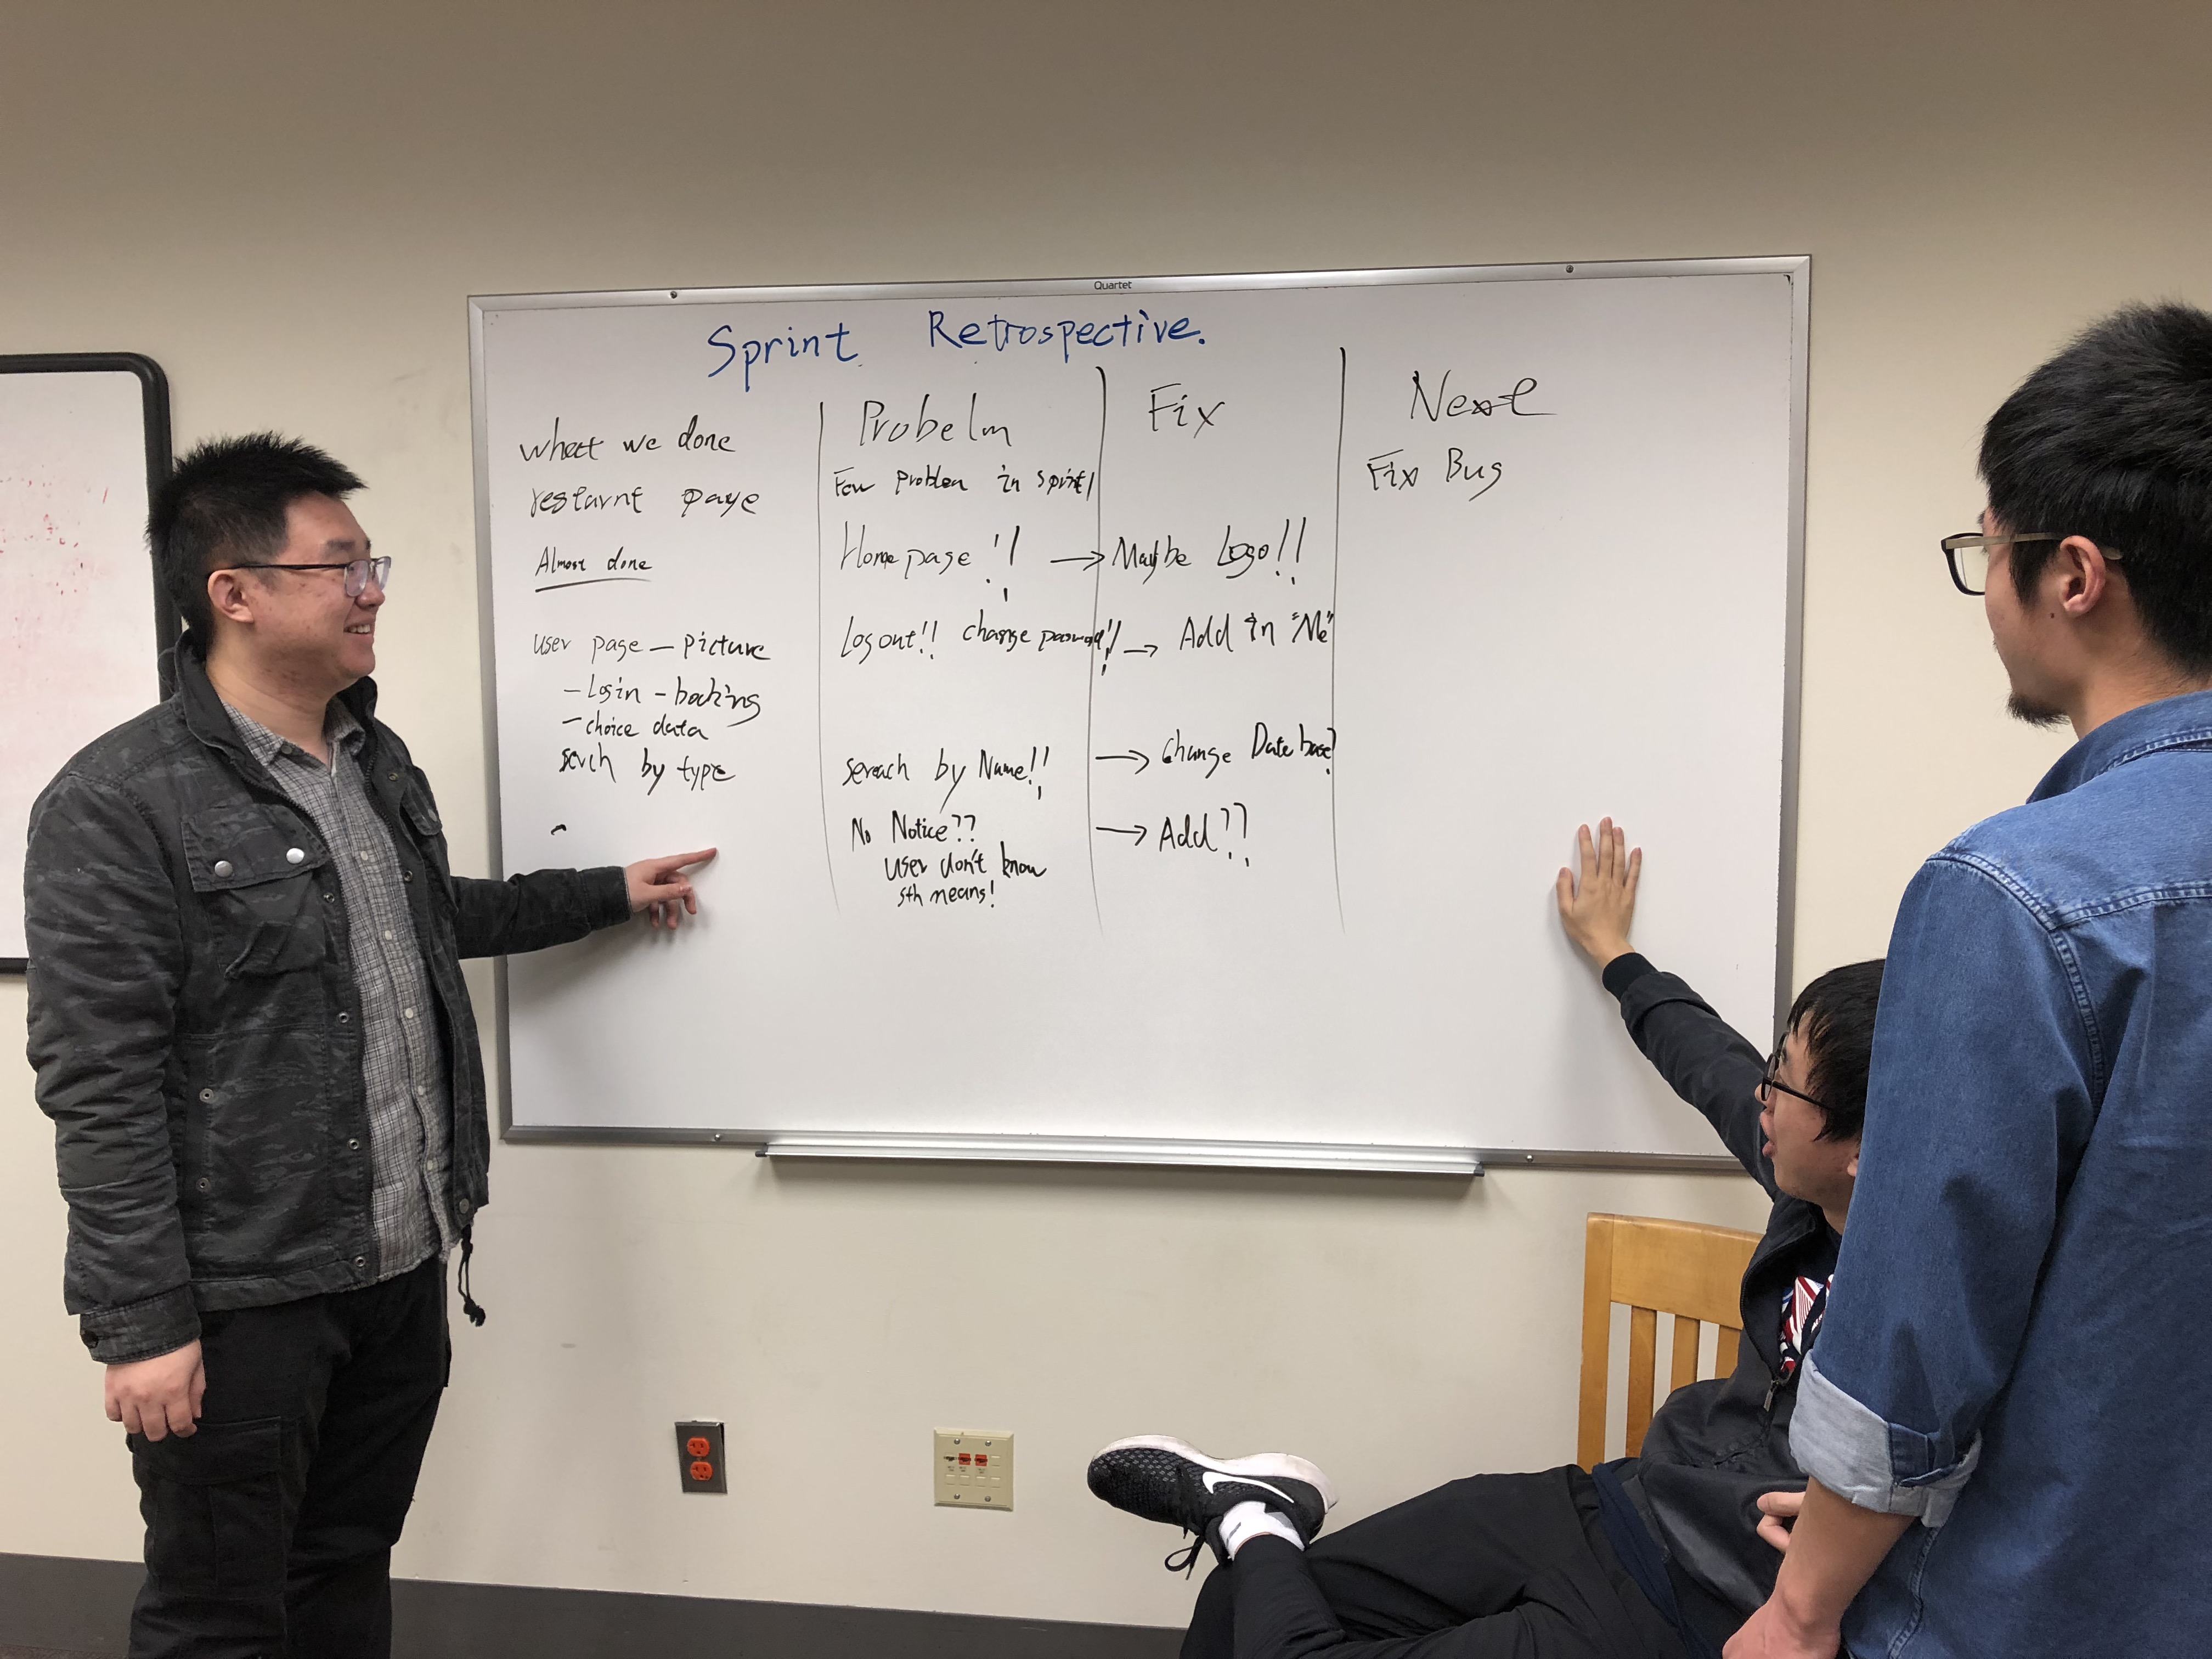 Quartet
Sprint Retrospective.
what we done
restarnt page
Almost done
user page - picture
- Login - booking
- choice data
serch by type
Probelm
Few problem in sprint1
Home page !!!
Log out!! change password!!
sereach by Name!!!
No Notice??
user don't know
sth means!
Fix
→ Maybe Logo!!
→ Add in "Me"
→ change Datebase?
→ Add??
Next
Fix Bug